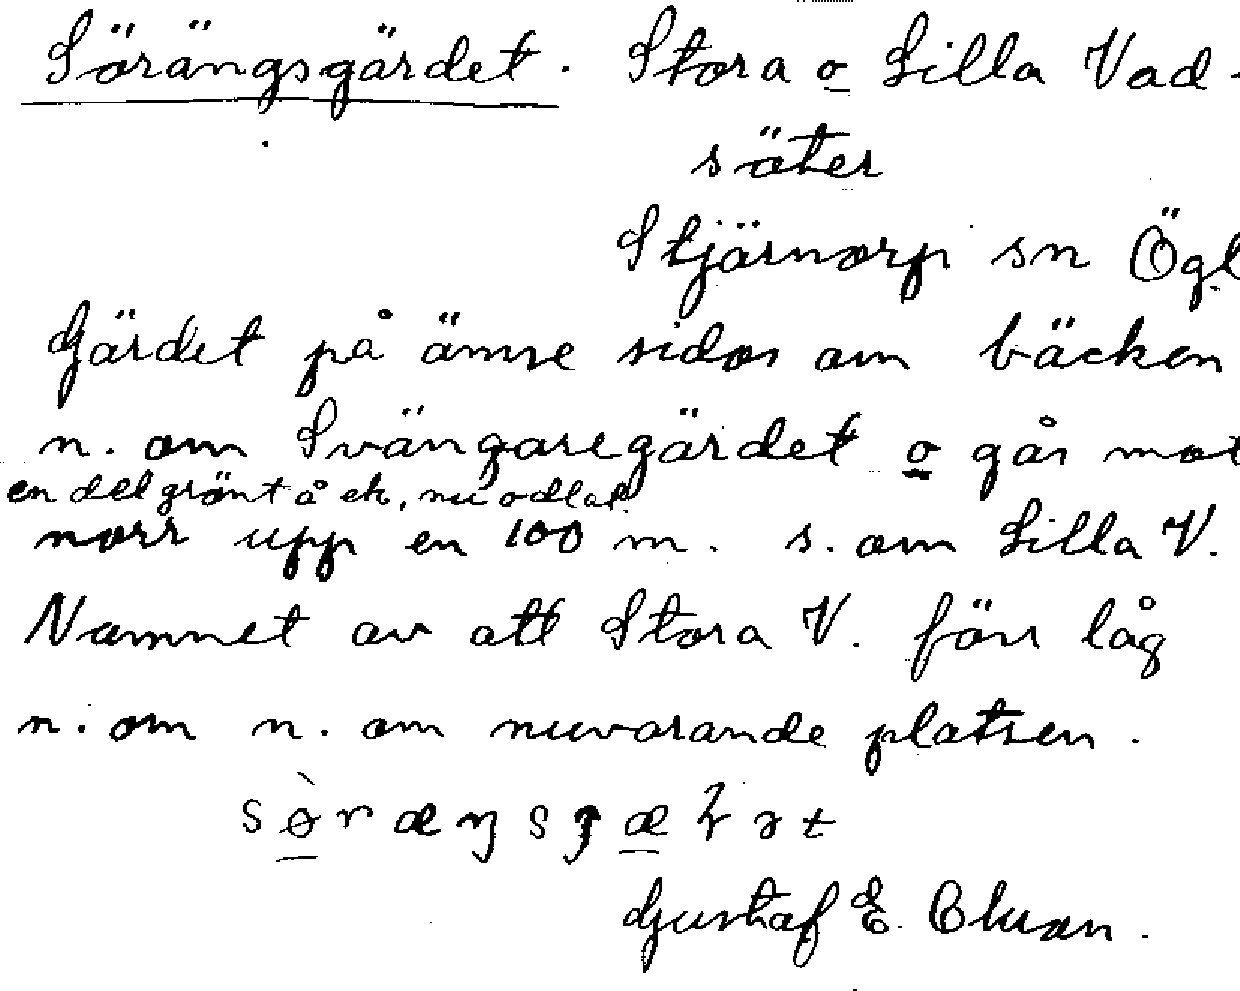 Sörängsgärdet. Stora o Lilla Vad-
säter
Stjärnorp sn Ögl
Gärdet på ömse sidor om bäcken
n. om Svängaregärdet o går mot
en del grönt å ek, nu odlat.
norr upp en 100 m. s. om Lilla V.
Namnet av att Stora V. förr låg
n. om n. om nuvarande platsen.
Gustaf E.